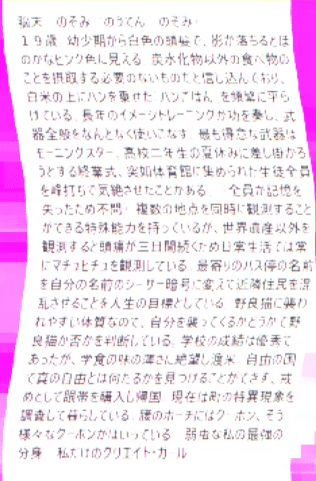 脳天　のぞみ　のうてん　のぞみ
１９歳　幼少期から白色の頭髪で、影が落ちるとほ
のかなピンク色に見える　炭水化物以外の食べ物の
ことを摂取する必要のないものだと信じ込んでおり、
白米の上にパンを乗せた「パンごはん」を頻繁に平ら
げている　長年のイメージトレーニングが功を奏し、武
器全般をなんとなく使いこなす　最も得意な武器は
モーニングスター　高校二年生の夏休みに差し掛かろ
うとする終業式、突如体育館に集められた生徒全員
を峰打ちで気絶させたことがある　　全員が記憶を
失ったため不問　複数の地点を同時に観測すること
ができる特殊能力を持っているが、世界遺産以外を
観測すると頭痛が三日間続くため日常生活では常
にマチュピチュを観測している　最寄りのバス停の名前
を自分の名前のシーザー暗号に変えて近隣住民を混
乱させることを人生の目標としている　野良猫に襲わ
れやすい体質なので、自分を襲ってくるかどうかで野
良猫か否かを判断している　学校の成績は優秀で
あったが、学食の味の薄さに絶望し渡米　自由の国
で真の自由とは何たるかを見つけることができず、戒
めとして眼帯を購入し帰国　現在は町の特異現象を
調査して暮らしている　腰のポーチにはクーポン、そう
様々なクーポンがはいっている　弱虫な私の最強の
分身　私だけのクリエイト・ガール